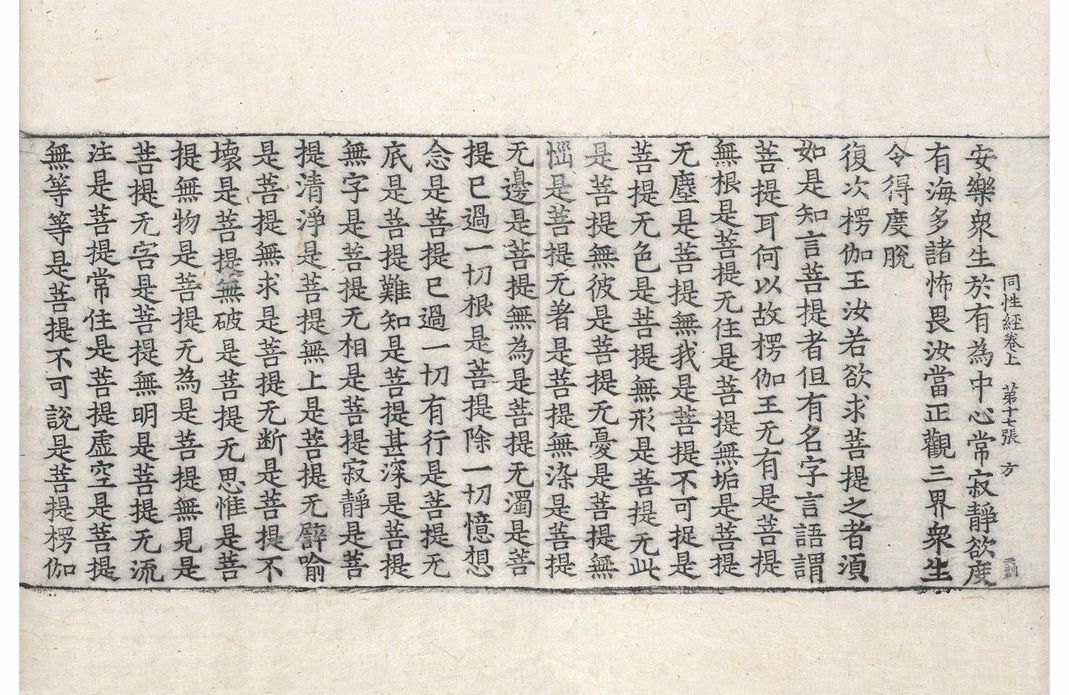 同性經卷上 第十七張 方
安樂衆生於有為中心常寂靜欲度
有海多諸怖畏汝當正觀三界衆生
令得度脫
復次楞伽王汝若欲求菩提之者湏
如是知言菩提者但有名字言語謂
菩提耳何以故楞伽王无有是菩提
無根是菩提无住是菩提無垢是菩提
无塵是菩提無我是菩提不可捉是
菩提无色是菩提無形是菩提无此
是菩提無彼是菩提无憂是菩提無
惱是菩提无著是菩提無染是菩提
无邊是菩提無為是菩提无濁是菩
提已過一切根是菩提除一切憶想
念是菩提已過一切有行是菩提无
底是菩提難知是菩提甚深是菩提
無字是菩提无相是菩提寂靜是菩
提清淨是菩提無上是菩提无譬喻
是菩提無求是菩提无断是菩提不
壞是菩提無破是菩提无思惟是菩
提無物是菩提无為是菩提無見是
菩提无害是菩提無明是菩提无流
注是菩提常住是菩提虛空是菩提
無等等是菩提不可說是菩提楞伽